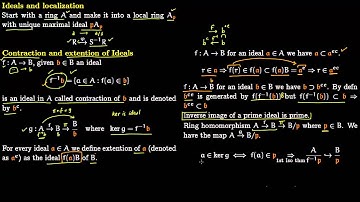 Ideals and localization
Start with a ring A and make it into a local ring A_p
with unique maximal ideal pA_p
R → S⁻¹R
Contraction and extention of Ideals
f : A → B, given b ∈ B an ideal
f⁻¹b = {a ∈ A : f(a) ∈ b}
is an ideal in A called contraction of b and is denoted
by bᶜ.
ker is ideal
g : A → B → B/b where ker g = f⁻¹b
For every ideal a ∈ A we define extention of a (denoted
as aᵉ) as the ideal f(a)B of B.
f : A → B for an ideal a ∈ A we have a ⊂ aᵉᶜ.
r ∈ a ⇒ f(r) ∈ f(a) ⊂ f(a)B = aᵉ ⇒ r ∈ aᵉᶜ
f : A → B for an ideal b ∈ B we have b ⊃ bᶜᵉ. By defn
bᶜᵉ is generated by f(f⁻¹(b)) but f(f⁻¹(b)) ⊂ b ⇒
bᶜᵉ ⊂ b
Inverse image of a prime ideal is prime.
Ring homomorphism A → B → B/p where p ∈ B. We
have the map A → B/p.
a ∈ ker g ⟺ f(a) ∈ p ⇒ A/f⁻¹p ↪ B/p
1st iso thm